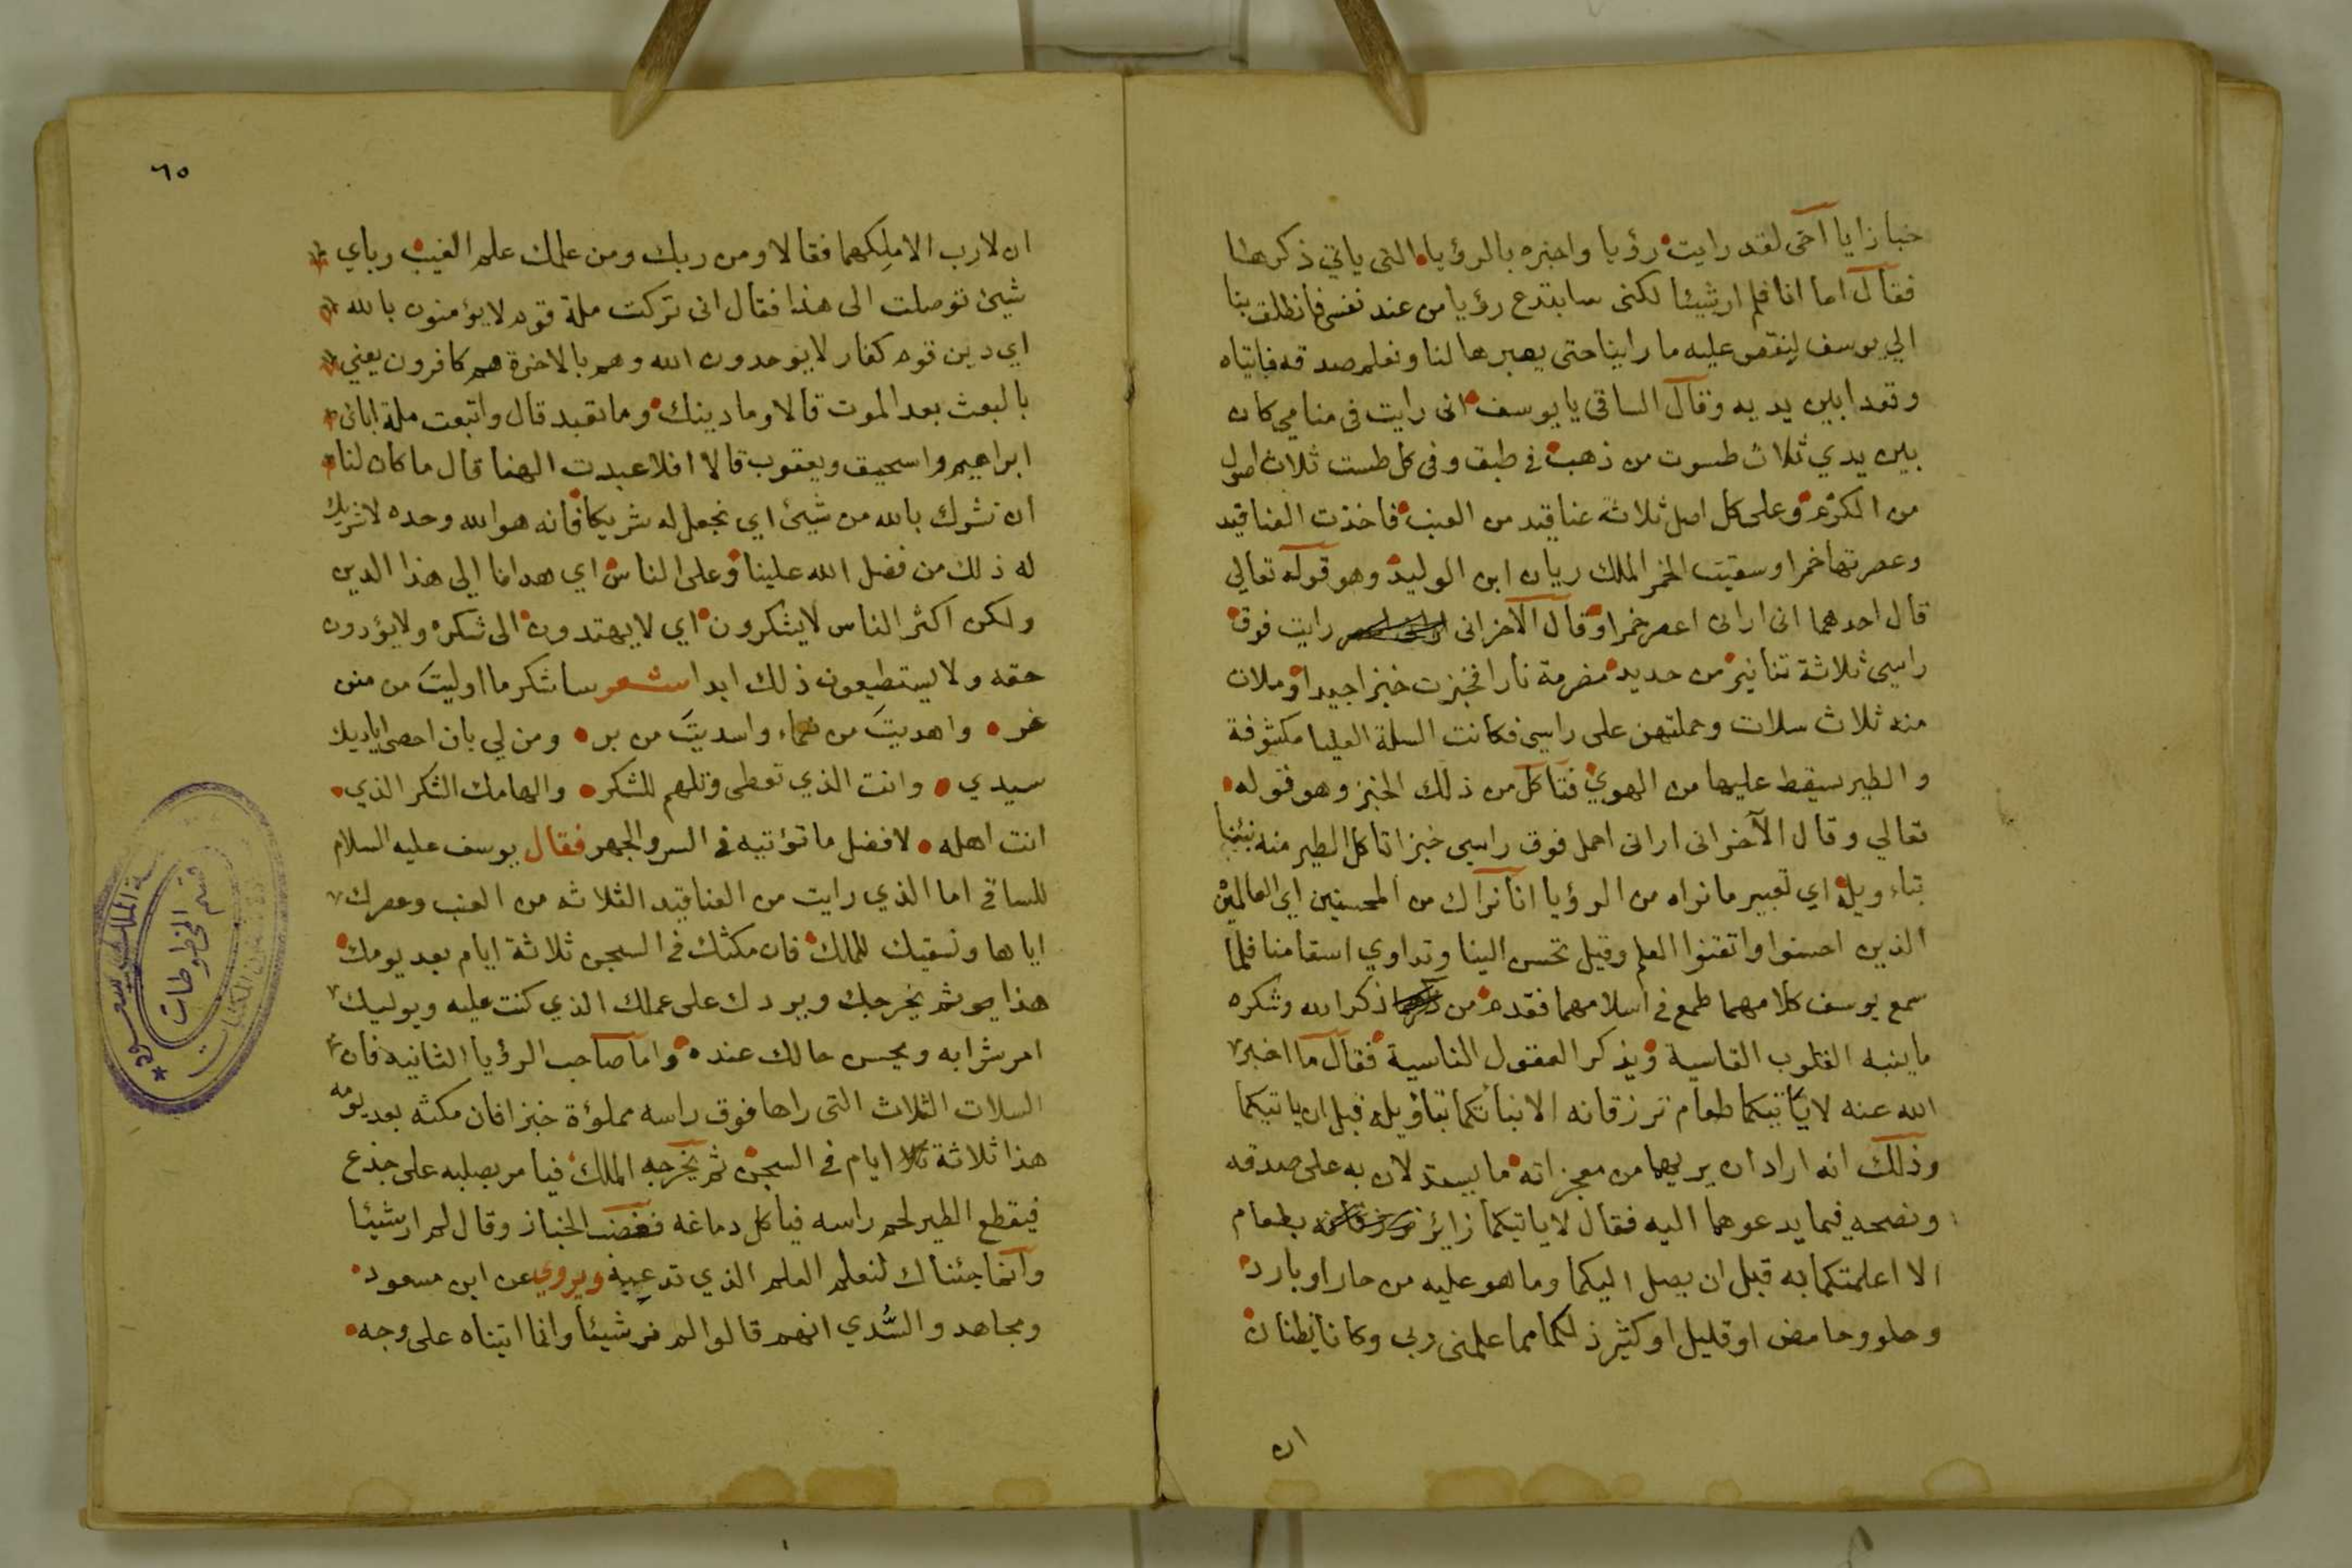 خبازا يا اخى لقد رايت رؤيا واخبره بالرؤيا التى ياتي ذكرها
فقال اما انا فلم ار شيئا لكنى سابتدع رؤيا من عند نفسى فانطلق بنا
الي يوسف لنقص عليه ما راينا حتى يعبرها لنا ونعلم صدقه فاتياه
وقعدا بين يديه وقال الساقى يا يوسف انى رايت فى منامي كان
بين يدي ثلاث طسوت من ذهب في طبق وفى كل طست ثلاث اصول
من الكرم وعلى كل اصل ثلاثة عناقيد من العنب فاخذت العناقيد
وعصرتها خمرا وسقيت الخمر الملك ريان ابن الوليد وهو قوله تعالي
قال احدهما انى ارانى اعصر خمرا وقال الاخر انى رايت فوق
راسي ثلاثة تنانير من حديد مضرمة نارا فخبزت خبزا جيدا وملات
منه ثلاث سلات وحملتهن على راسي فكانت السلة العليا مكشوفة
والطير سيقط عليها من الهوي فتاكل من ذلك الخبز وهو قوله
تعالي وقال الآخر انى ارانى احمل فوق راسي خبزا تاكل الطير منه نبئنا
بتاء ويله اي تعبير ما نراه من الرؤيا انا نراك من المحسنين اي العالمين
الذين احسنوا واتقنوا العلم وقيل تحسن الينا وتداوي اسقامنا فلما
سمع يوسف كلامهما طمع في اسلامهما فقدم من ذكر الله وشكره
ما ينبه القلوب القاسية ويذكر العقول الناسية فقال ما اخبر
الله عنه لا ياتيكما طعام ترزقانه الا نباتكما بتاؤيله قبل ان ياتيكما
وذلك انه اراد ان يريهما من معجزاته ما يستدلان به على صدقه
ونصحه فيما يدعوهما اليه فقال لا ياتيكما زائر بطعام
الا اعلمتكما به قبل ان يصل اليكما وما هو عليه من حار او بارد
وحلو وحامض او قليل او كثير ذلكما مما علمنى ربى وكانا يظنان
ان
٦٥
ان لا رب الا ملكهما فقالا ومن ربك ومن علمك علم الغيب وباي
شيئ توصلت الى هذا فقال انى تركت ملة قوم لا يؤمنون بالله
اي دين قوم كفار لا يوحدون الله وهم بالاخرة هم كافرون يعني
بالبعث بعد الموت قالا وما دينك وما تعبد قال واتبعت ملة ابائى
ابراهيم واسحيق ويعقوب قالا افلا عبدت الهنا قال ما كان لنا
ان نشرك بالله من شيئ اي نجعل له شريكا فانه هو الله وحده لا شريك
له ذلك من فضل الله علينا وعلى الناس اي هدانا الي هذا الدين
ولكن اكثر الناس لا يشكرون اي لا يهتدون الى شكره ولا يؤدون
حقه ولا يستطيعون ذلك ابدا شعر ساشكر ما اوليتَ من منن
غر واهديتَ من نعماء واسديتَ من بر ومن لي بان احصى اياديك
سيدي وانت الذي تعطى وتلهم للشكر والهامك الشكر الذي
انت اهله لافضل ما تؤتيه في السر والجهر فقال يوسف عليه السلام
للساقي اما الذي رايت من العناقيد الثلاثه من العنب وعصرك
اياها وتسقيك للملك فان مكثك في السجن ثلاثة ايام بعد يومك
هذا ثم يخرجك ويردك على عملك الذي كنت عليه ويوليك
امر شرابه ويحسن حالك عنده واما صاحب الرؤيا الثانيه فان
السلات الثلاث التى راها فوق راسه مملؤة خبزا فان مكثه بعد يومه
هذا ثلاثة ايام في السجن ثم يخرجه الملك فيامر بصلبه على جذع
فيقطع الطير لحم راسه فياكل دماغه فغضب الخباز وقال لم ار شيئا
وانما جئناك لنعلم العلم الذي تدعيه ويروي عن ابن مسعود
ومجاهد والسُّدي انهم قالوا لم نر شيئا وانما اتيناه على وجه
الملك سعود
قسم المخطوطات